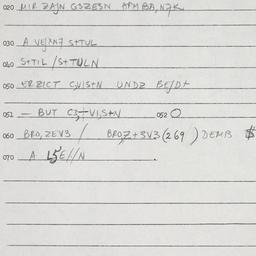 020 MIR ZAJN GSZESN APM BA, NZK
030 A VEJXN7 S+TUL
040 S+TIL / S+TULN
050 ERZICT C,VIS+N UNDZ BEJD+
051 — BUT C3,+VI,S+N 052 O
060 BRO,ZEV3 / BRO,Z+3V3 (269) DEMB $
070 A L5E//N .